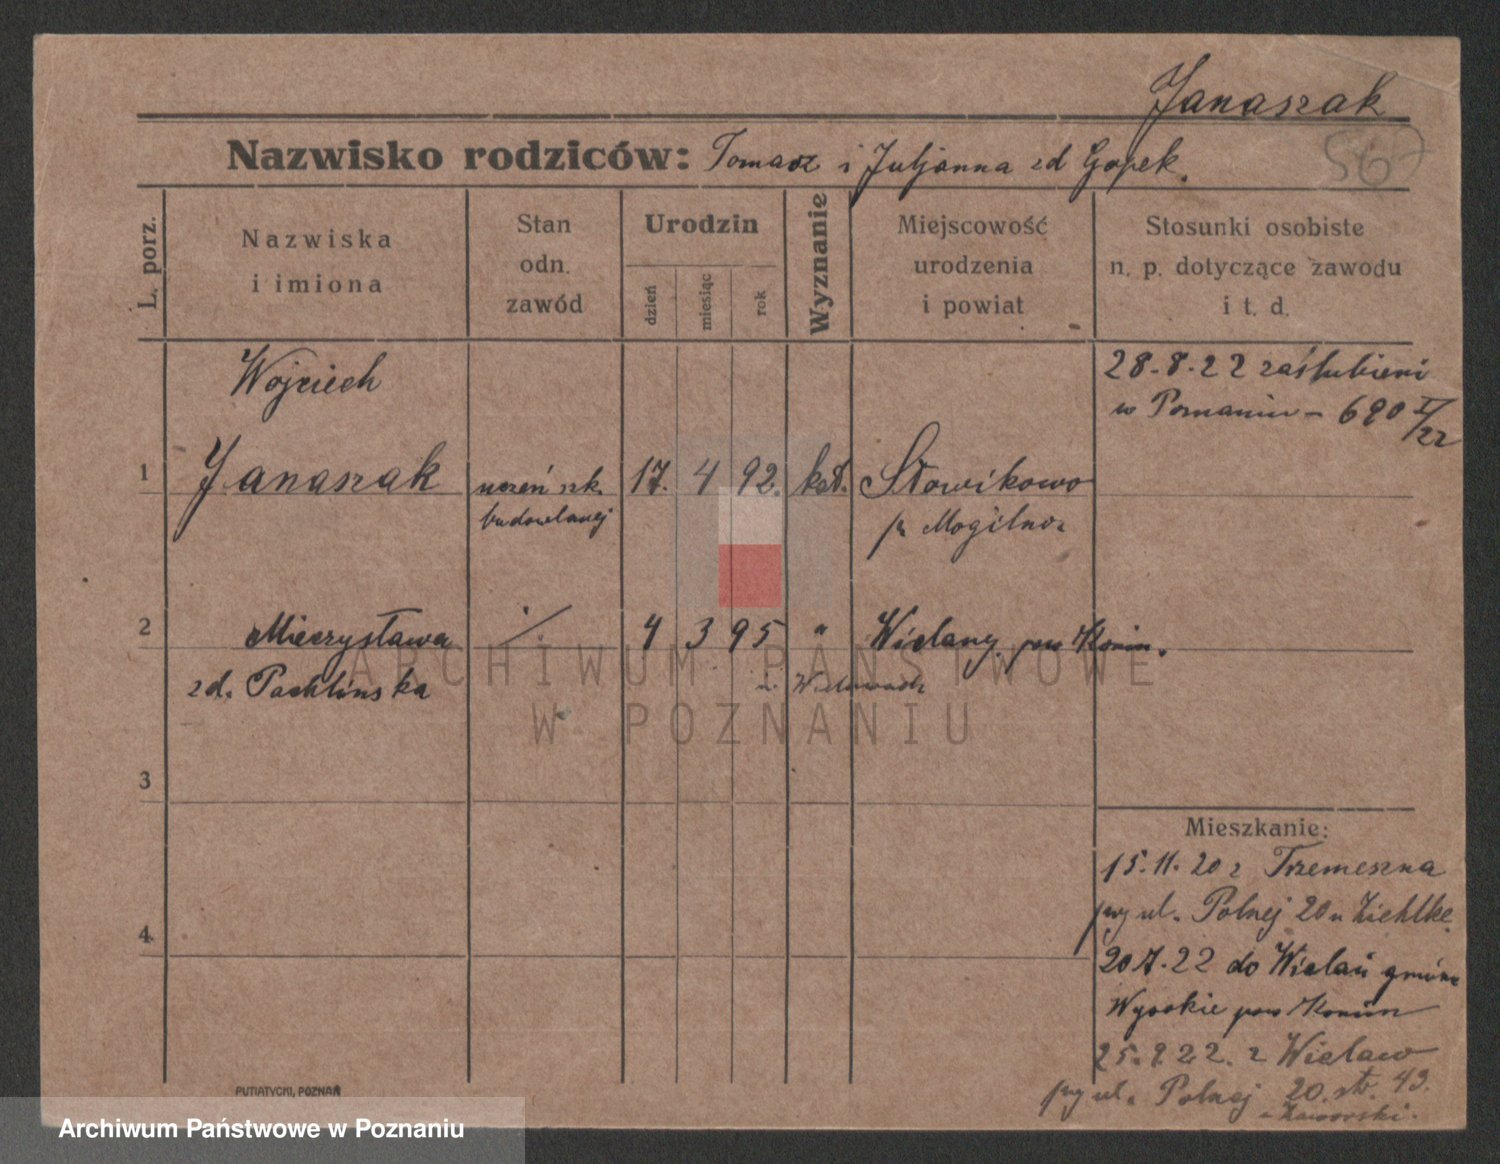 Janaszak
567
Nazwisko rodziców: Tomasz i Juljanna zd Gopek.
L. porz.
Nazwiska
i imiona
Stan
odn.
zawód
Urodzin
dzień
miesiąc
rok
Wyznanie
Miejscowość
urodzenia
i powiat
Stosunki osobiste
n. p. dotyczące zawodu
i t. d.
Wojciech
28-8-22 zaślubieni
w Poznaniu - 690 I/22
1 Janaszak uczeń szk. 17. 4 92. kat. Słowikowo
budowlanej p. Mogilno
2 Mieczysława 4 3 95 " Wielany pow Konin.
zd. Pachlinska
3
4
Mieszkanie:
15.11.20 z Trzemeszna
przy ul. Polnej 20 u Ziehlke
20.7.22 do Wielan gmina
Wysokie pow Konin
25.9.22. z Wielaw
przy ul. Polnej 20. stb. 43.
Zaworski.
PUTIATYCKI, POZNAŃ
ARCHIWUM PAŃSTWOWE
W POZNANIU
Archiwum Państwowe w Poznaniu